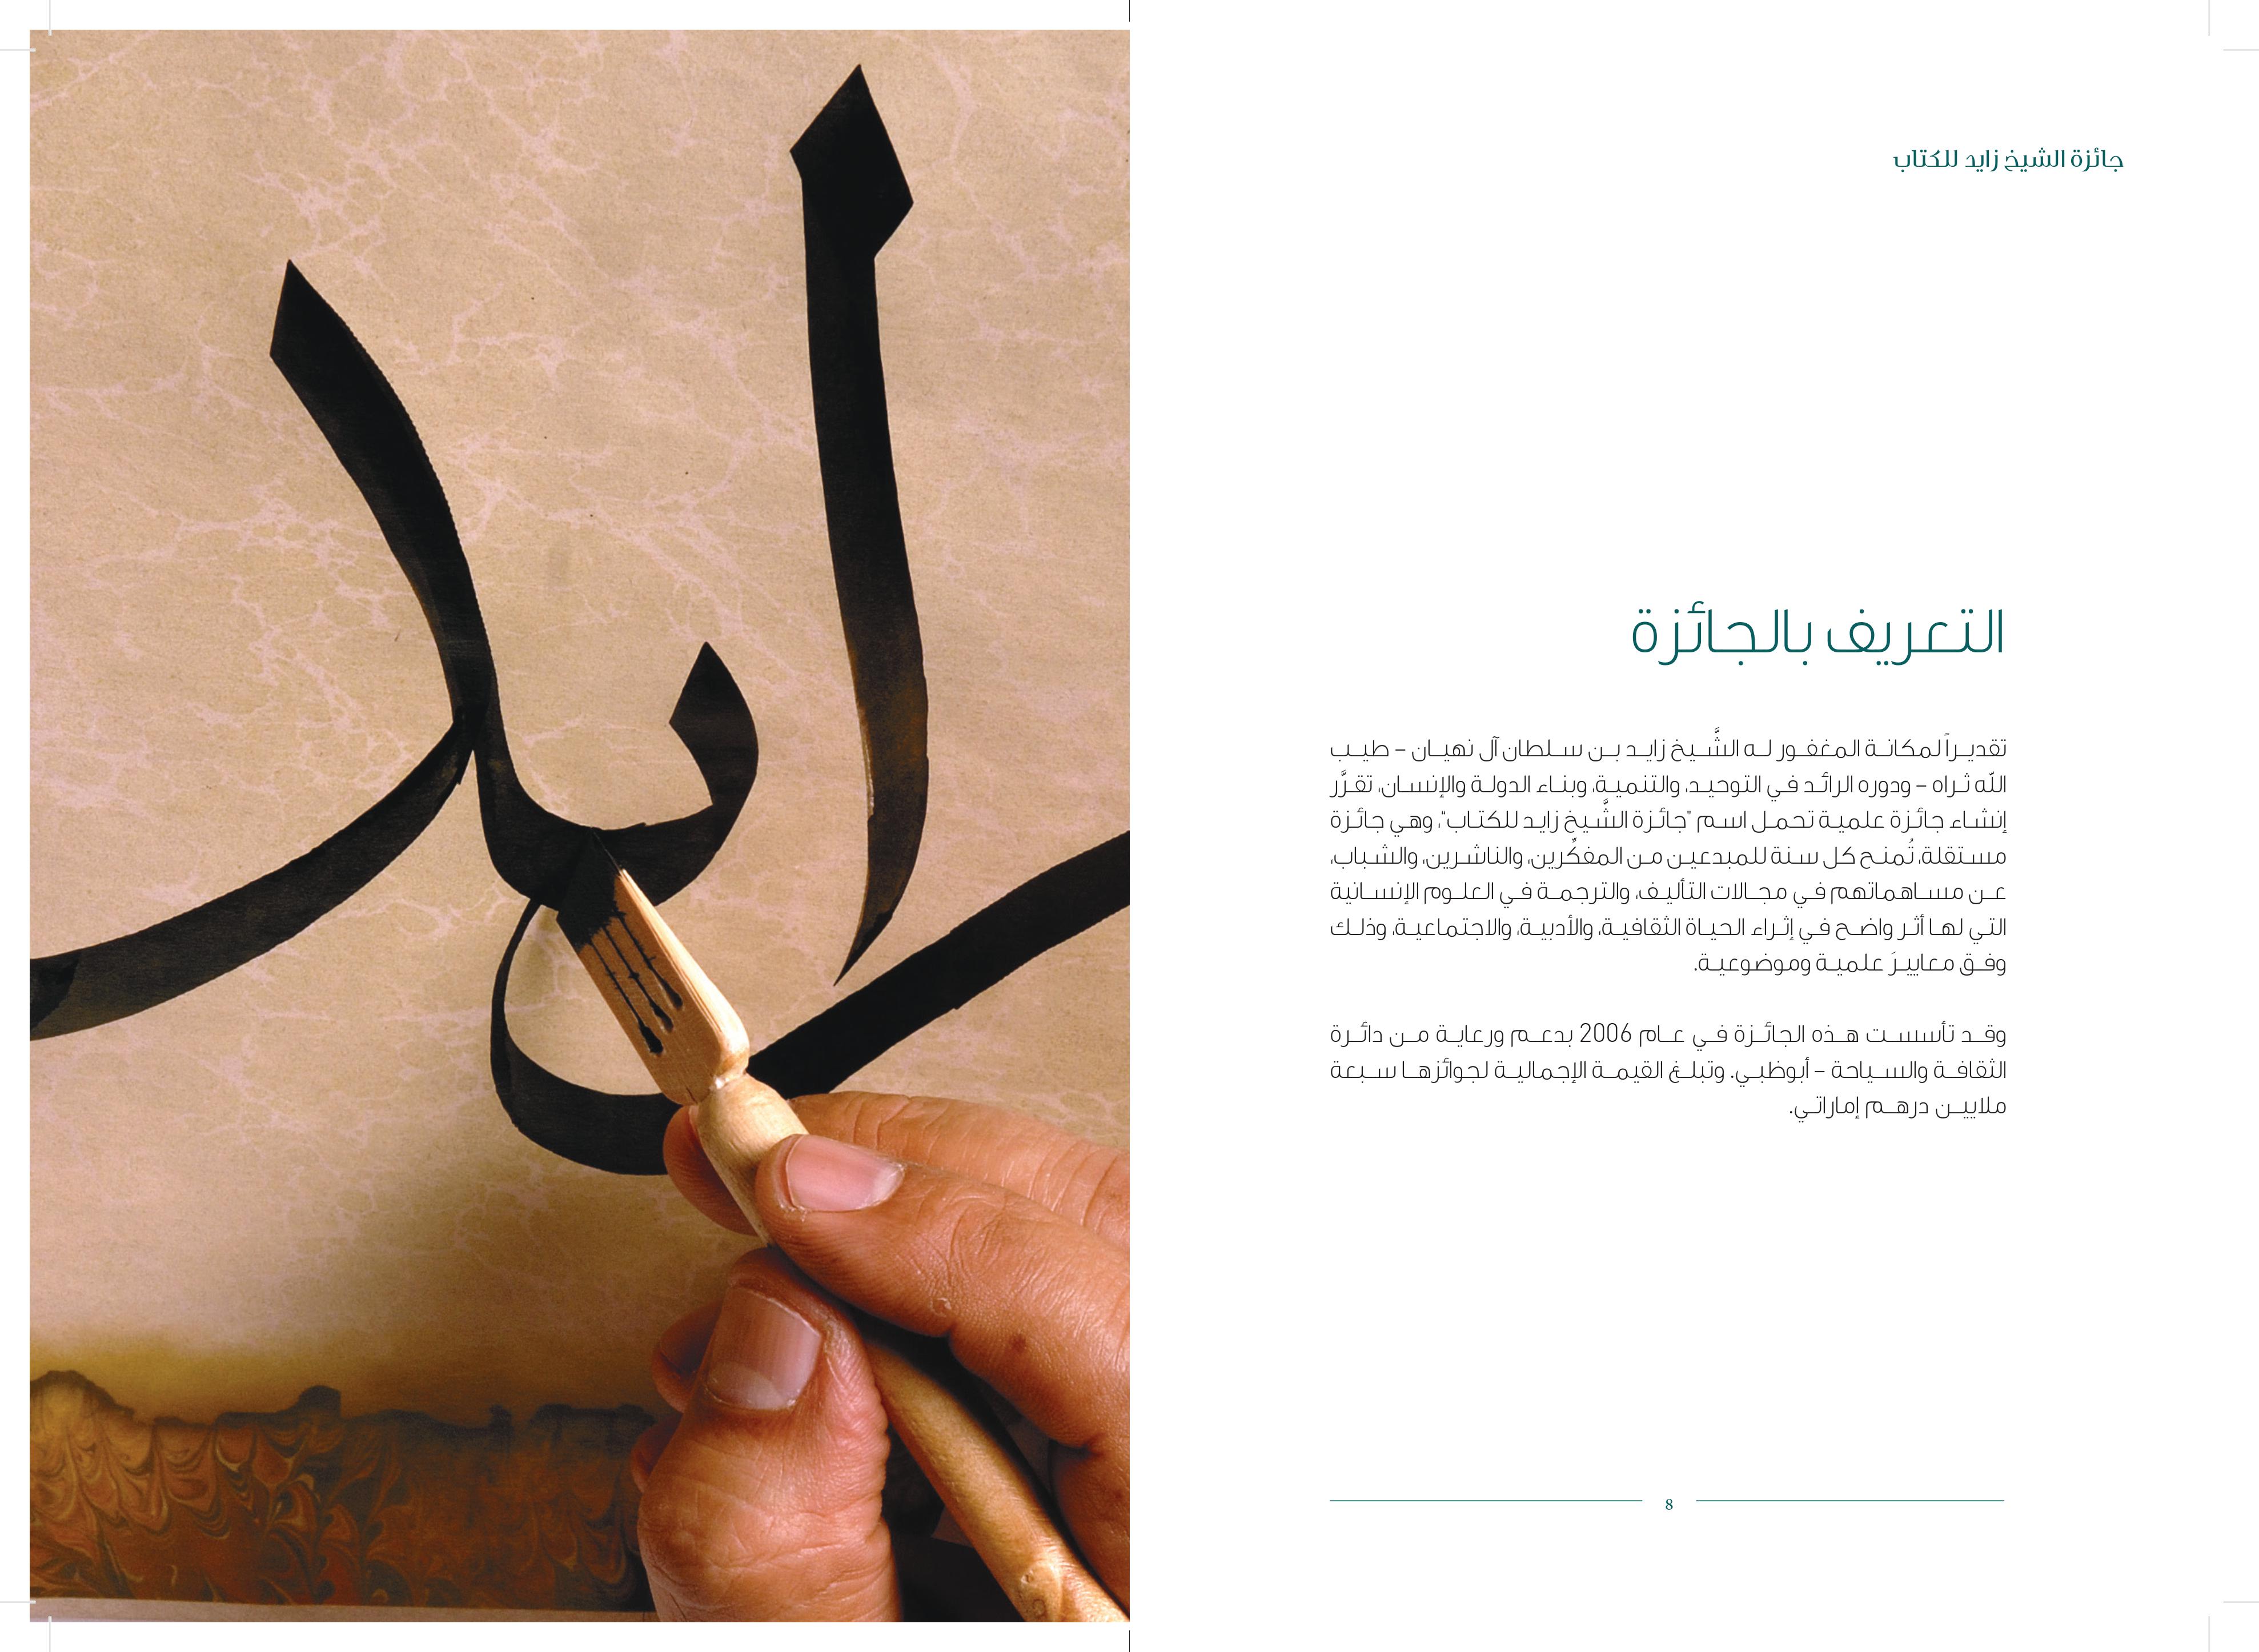 جائزة الشيخ زايد للكتاب
التعريف بالجائزة
تقديراً لمكانة المغفور له الشَّيخ زايد بن سلطان آل نهيان – طيب
الله ثراه – ودوره الرائد في التوحيد، والتنمية، وبناء الدولة والإنسان، تقرَّر
إنشاء جائزة علمية تحمل اسم "جائزة الشَّيخ زايد للكتاب"، وهي جائزة
مستقلة، تُمنح كل سنة للمبدعين من المفكِّرين، والناشرين، والشباب،
عن مساهماتهم في مجالات التأليف، والترجمة في العلوم الإنسانية
التي لها أثر واضح في إثراء الحياة الثقافية، والأدبية، والاجتماعية، وذلك
وفق معاييرَ علمية وموضوعية.
وقد تأسست هذه الجائزة في عام 2006 بدعم ورعاية من دائرة
الثقافة والسياحة – أبوظبي. وتبلغ القيمة الإجمالية لجوائزها سبعة
ملايين درهم إماراتي.
8